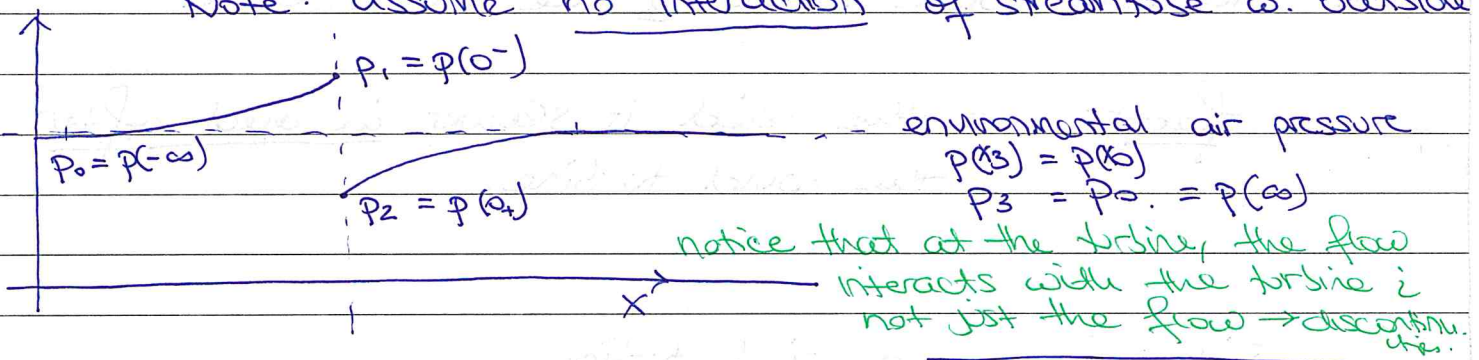 Note: assume no interaction of streamtube w. outside
p₁ = p(0⁻)
environmental air pressure
p₀ = p(-∞)
p(x3) = p(x0)
p₂ = p(0+)
p3 = p0. = p(∞)
notice that at the turbine, the flow
interacts with the turbine &
not just the flow → discontinu.
ities.
x